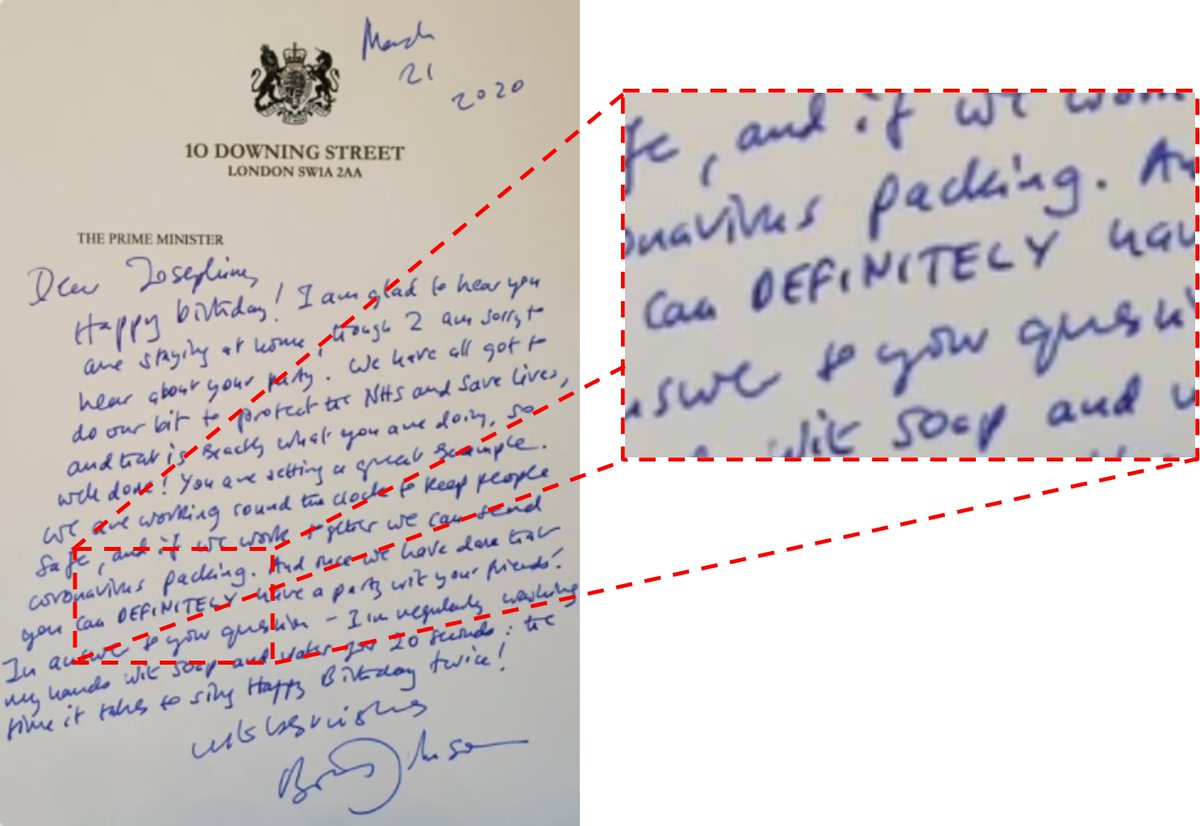 March
21
2020
10 DOWNING STREET
LONDON SW1A 2AA
THE PRIME MINISTER
Dear Josephine
Happy birthday! I am glad to hear you
are staying at home, though I am sorry to
hear about your party. We have all got to
do our bit to protect the NHS and save lives,
and that is exactly what you are doing, so
well done! You are setting a great example.
We are working round the clock to keep people
safe, and if we work together we can send
coronavirus packing. And once we have done that
you can DEFINITELY have a party with your friends.
In answer to your question - I'm regularly washing
my hands with soap and water for 20 seconds: the
time it takes to sing Happy Birthday twice!
with best wishes
Boris Johnson
fe, and if we work
onavirus packing. An
can DEFINITELY hav
nswer to your questi
with soap and w